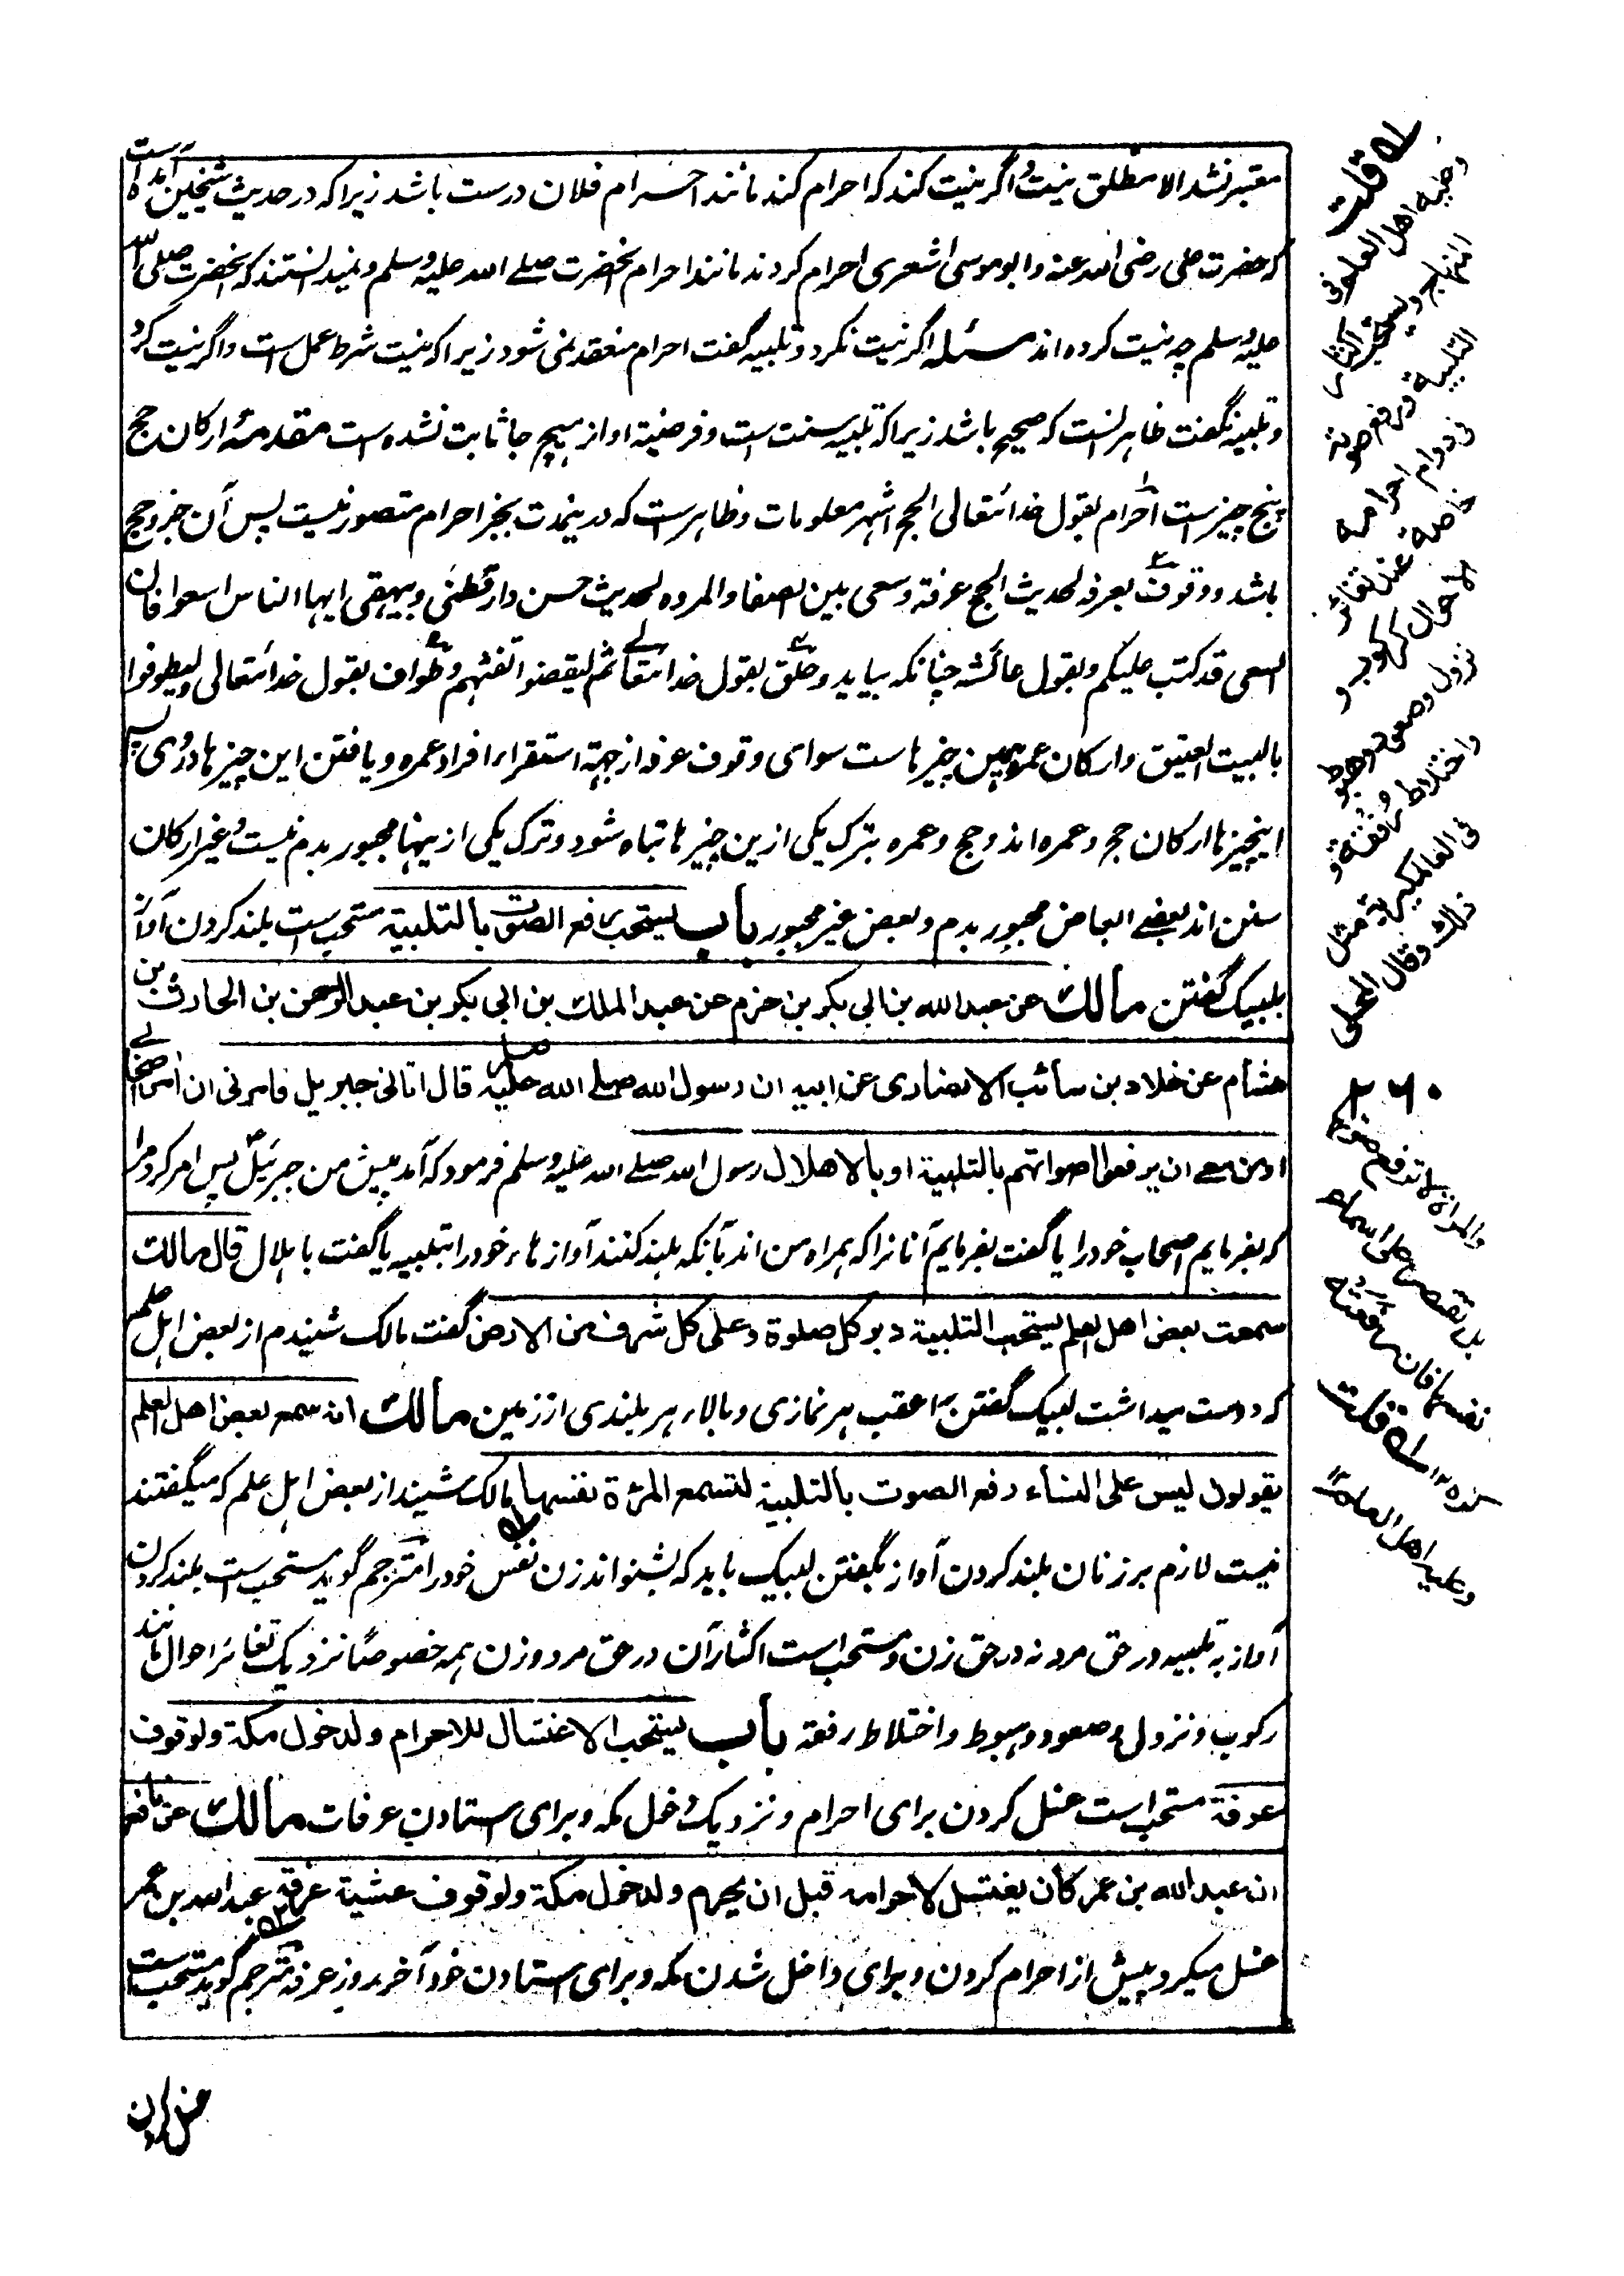 معتبر نشد الا مطلق نیت و اگر نیت کند که احرام کند مانند احرام فلان درست باشد زیرا که در حدیث شیخین آمده است
که حضرت علی رضی الله عنه و ابو موسی اشعری احرام کردند مانند احرام آنحضرت صلے الله علیه وسلم و نمیدانستند که آنحضرت صلی الله
علیه وسلم چه نیت کرده اند مسئله اگر نیت نکرد و تلبیه گفت احرام منعقد نمی شود زیرا که نیت شرط عمل است و اگر نیت کرد
و تلبیه نگفت ظاهر آنست که صحیح باشد زیرا که تلبیه سنت است و فرضیة او از هیچ جا ثابت نشده است مقدمة ارکان حج
پنج چیز است احرام بقول خدائتعالی الحج اشهر معلومات و ظاهر است که درینمدت بجز احرام متصور نیست پس آن جزو حج
باشد و وقوف بعرفه لحدیث الحج عرفة و سعی بین الصفا و المروه لحدیث حسن دارقطنی و بیهقی ایها الناس اسعوا فان
السعی قد کتب علیکم و بقول عائشه چنانکه بیاید و حلق بقول خدائتعالے ثم لیقضوا تفثهم و طواف بقول خدائتعالی و لیطوفوا
بالبیت العتیق و ارکان عمره همین چیزهاست سوای وقوف عرفه از جهة استقراء افراد عمره و یافتن این چیزها در وی پس
اینچیزها ارکان حج و عمره اند و حج و عمره بترک یکی ازین چیزها تباه شود و ترک یکی ازینها مجبور بدم نیست و غیر ارکان
سنن اند بعضے ابعاض مجبور بدم و بعض غیر مجبور باب یستحب رفع الصوت بالتلبیة مستحب است بلند کردن آواز
بلبیک گفتن مالك عن عبد الله بن ابی بکر بن حزم عن عبد الملك بن ابی بکر بن عبد الرحمن بن الحارث بن
هشام عن خلاد بن سائب الانصاری عن ابیه ان رسول الله صلے الله علیه وسلم قال اتانی جبریل فامرنی ان امر اصحابے
او من معے ان یرفعوا اصواتهم بالتلبیة او بالاهلال رسول الله صلے الله علیه وسلم فرمود که آمد پیش من جبرئیل پس امر کرد مرا
که بفرمایم اصحاب خود را یا گفت بفرمایم آنانرا که همراه من اند بآنکه بلند کنند آوازهاء خود را بتلبیه یا گفت باهلال قال مالك
سمعت بعض اهل العلم یستحب التلبیة دبر کل صلوة و علی کل شرف من الارض گفت مالک شنیدم از بعض اهل علم
که دوست میداشت لبیک گفتن را عقب هر نمازی و بالاء هر بلندی از زمین مالك انه سمع بعض اهل العلم
یقولون لیس علی النساء رفع الصوت بالتلبیة لتسمع المرءة نفسها مالک شنید از بعض اهل علم که میگفتند
نیست لازم بر زنان بلند کردن آواز بگفتن لبیک باید که بشنواند زن نفس خود را مترجم گوید مستحب است بلند کردن
آواز به تلبیه در حق مرد نه در حق زن و مستحب است اکثار آن در حق مرد و زن همه خصوصًا نزدیک تغائر احوال مانند
رکوب و نزول و صعود و هبوط و اختلاط رفقه باب یستحب الاغتسال للاحرام و لدخول مکة و لوقوف
عرفة مستحب است غسل کردن برای احرام و نزدیک دخول مکه و برای استادن عرفات مالك عن نافع
ان عبد الله بن عمر کان یغتسل لاحرامه قبل ان یحرم و لدخول مکة و لوقوف عشیة عرفة عبد الله بن عمر
غسل میکرد پیش از احرام کردن و برای داخل شدن مکه و برای استادن خود آخر روز عرفه مترجم گوید مستحب است
غسل کردن
له قلت
وعلیه اهل العلم وفی
المنهاج ویستحب اکثار
التلبیة ورفع صوته
فی دوام احرامه
خاصة عند تغائر
الاحوال کرکوب و
نزول وصعود وهبوط
واختلاط رفقة و
فی العالمکیریة مثل
ذلك وقال المحلی
۲۶۰
والمراة لا ترفع صوتها
بل تقتصر علی اسماع
نفسها فان رفعته
کره ۱۲ له قلت
وعلیه اهل العلم ۱۲